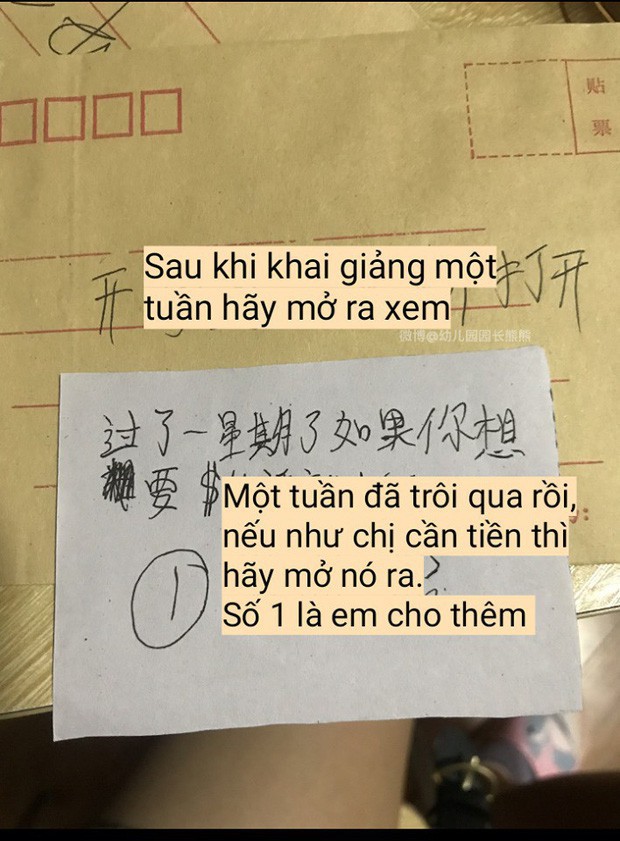 贴
票
开
Sau khi khai giảng một
tuần hãy mở ra xem
打开
微博@幼儿园园长熊熊
过了一星期了如果你想
要 $
Một tuần đã trôi qua rồi,
nếu như chị cần tiền thì
hãy mở nó ra.
Số 1 là em cho thêm
1